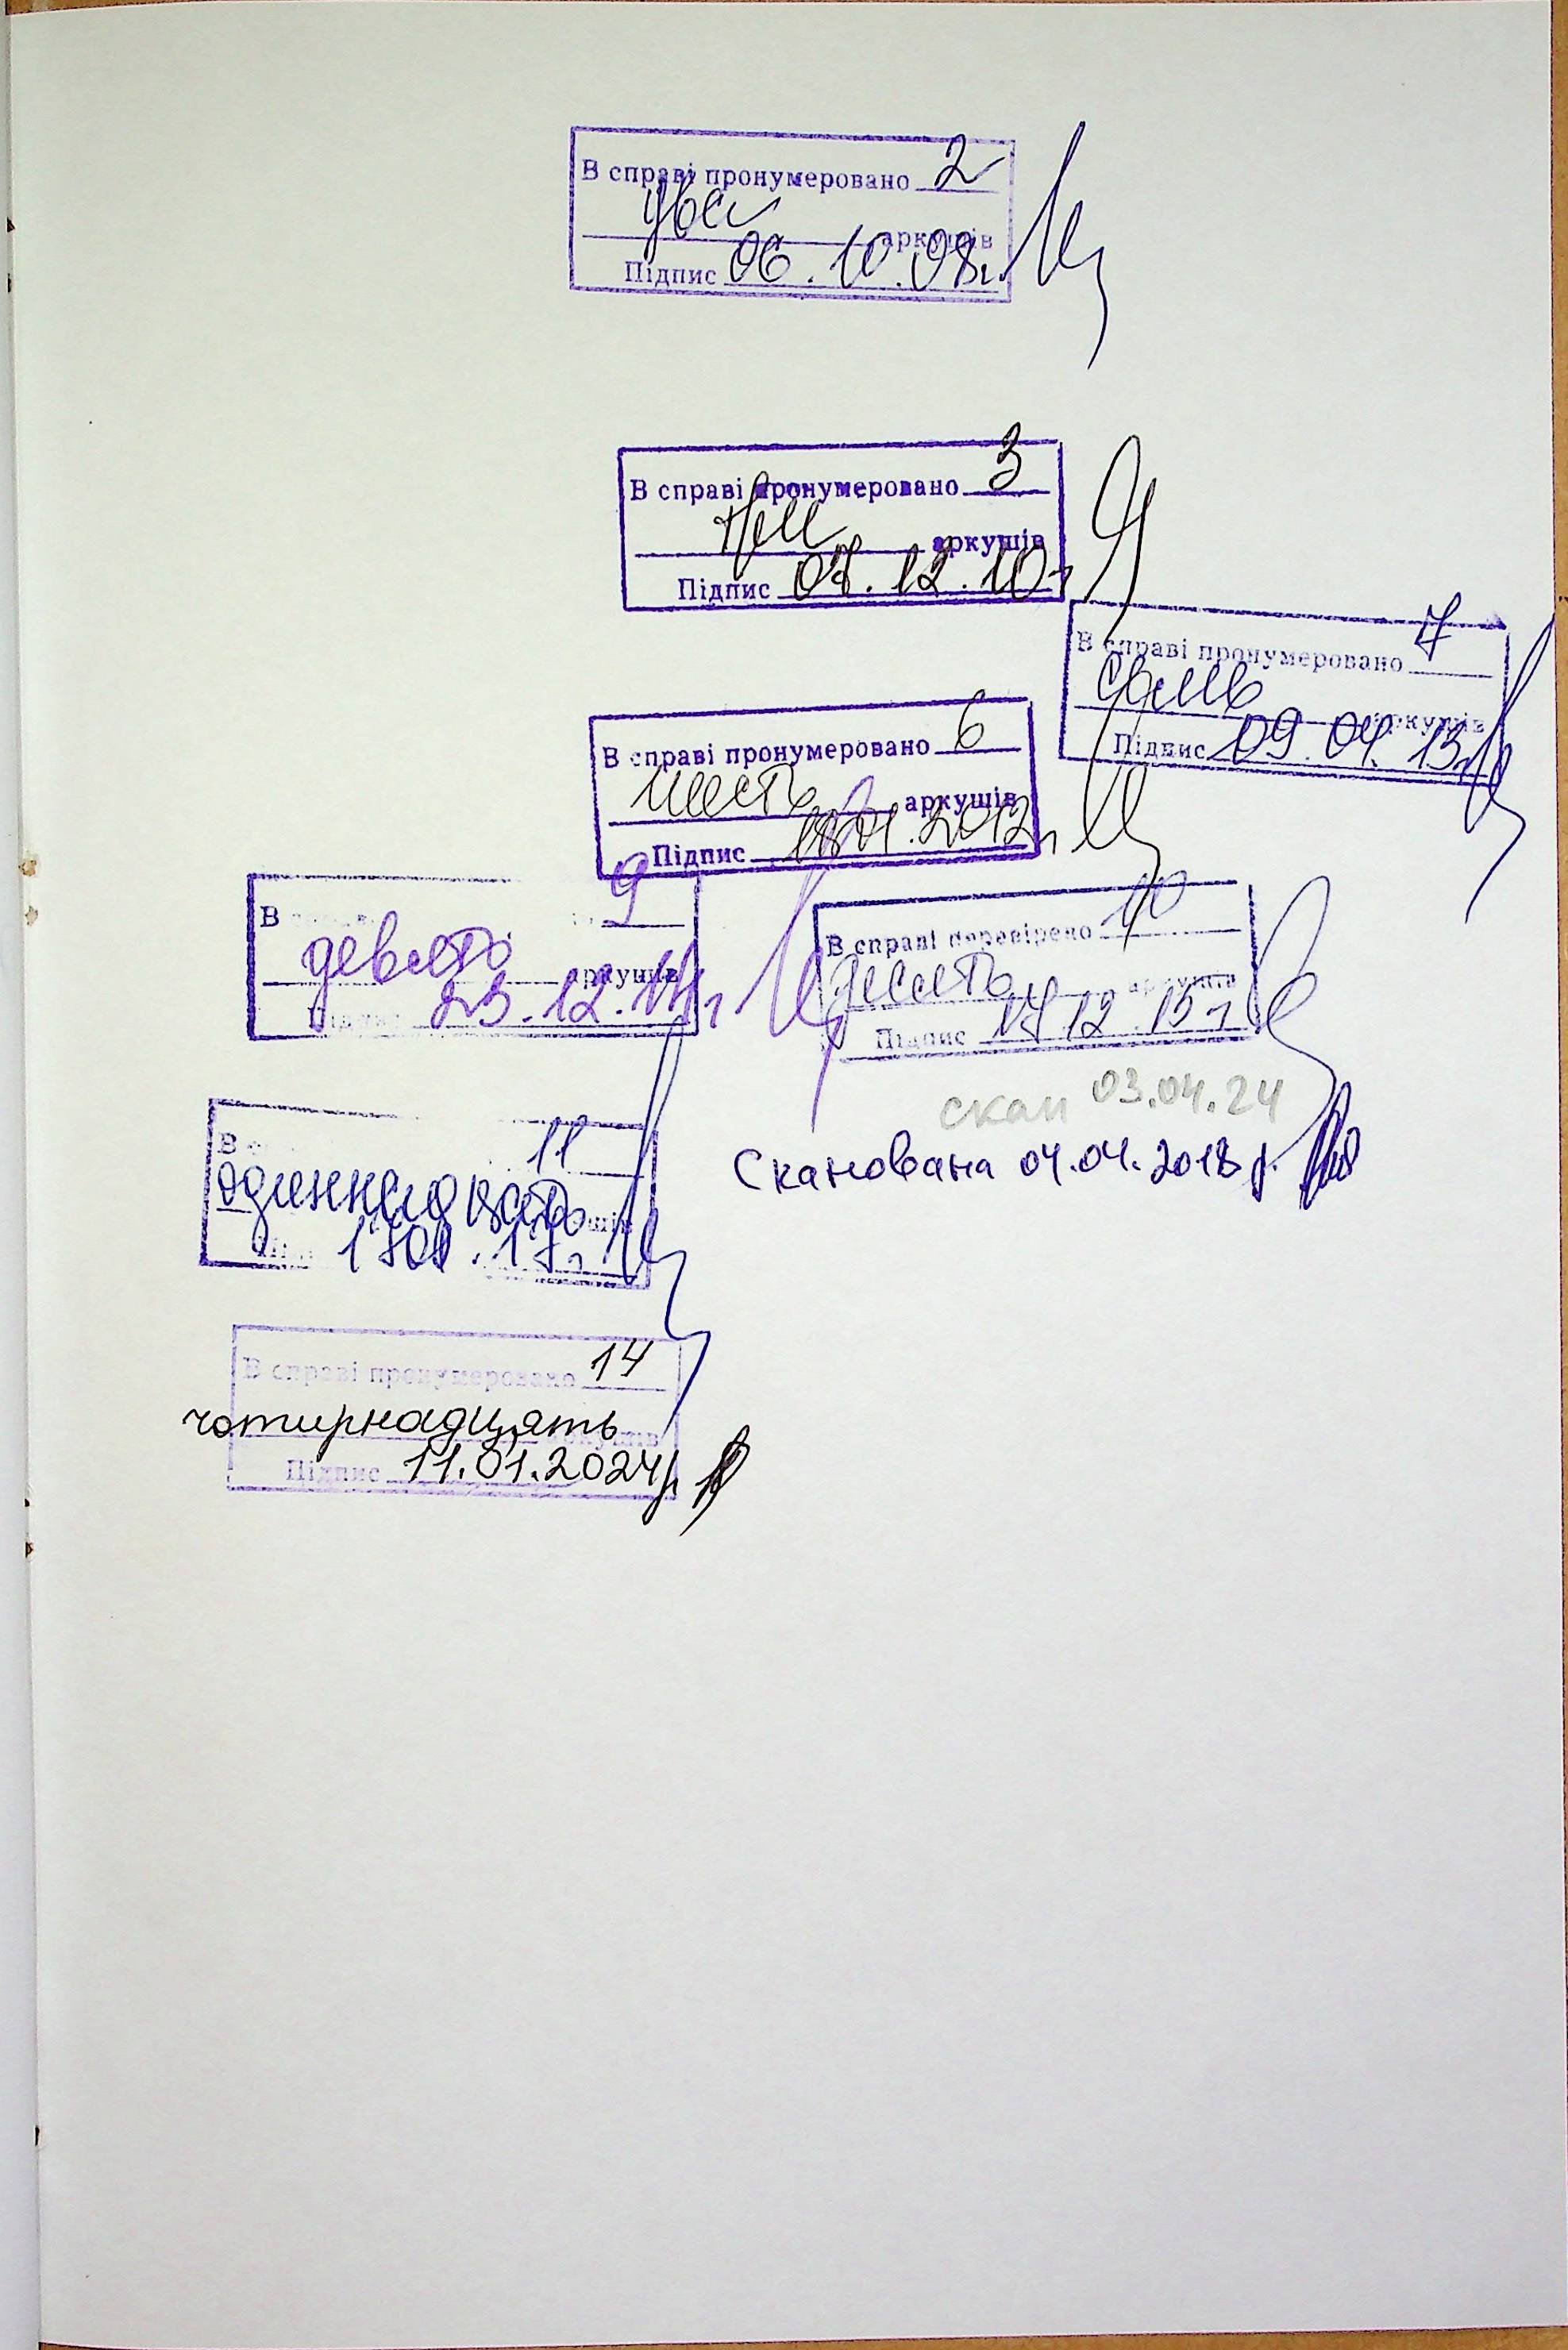 В справі пронумеровано 2
два аркушів
Підпис 06.10.08г.
В справі пронумеровано 3
три аркушів
Підпис 07.12.10г
В справі пронумеровано 7
семь аркушів
Підпис 09.04.13г
В справі пронумеровано 6
шесть аркушів
Підпис 18.01.2012г
В 9
девять аркушів
Підпис 23.12.14г
В справі перевірено 10
десять аркушів
Підпис 17.12.15г
скан 03.04.24
Сканована 04.04.2018 р.
В 11
одиннадцать
17г.
В справі пронумеровано 14
чотирнадцять аркушів
Підпис 11.01.2024р